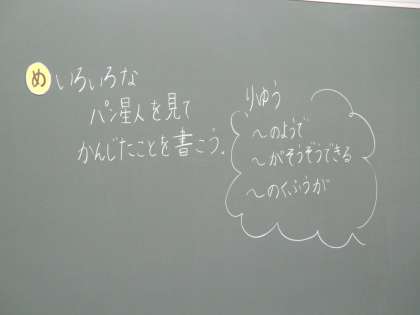 め いろいろな
パン星人を見て
かんじたことを書こう。
りゆう
~のようで
~がそうぞうできる
~のくふうが